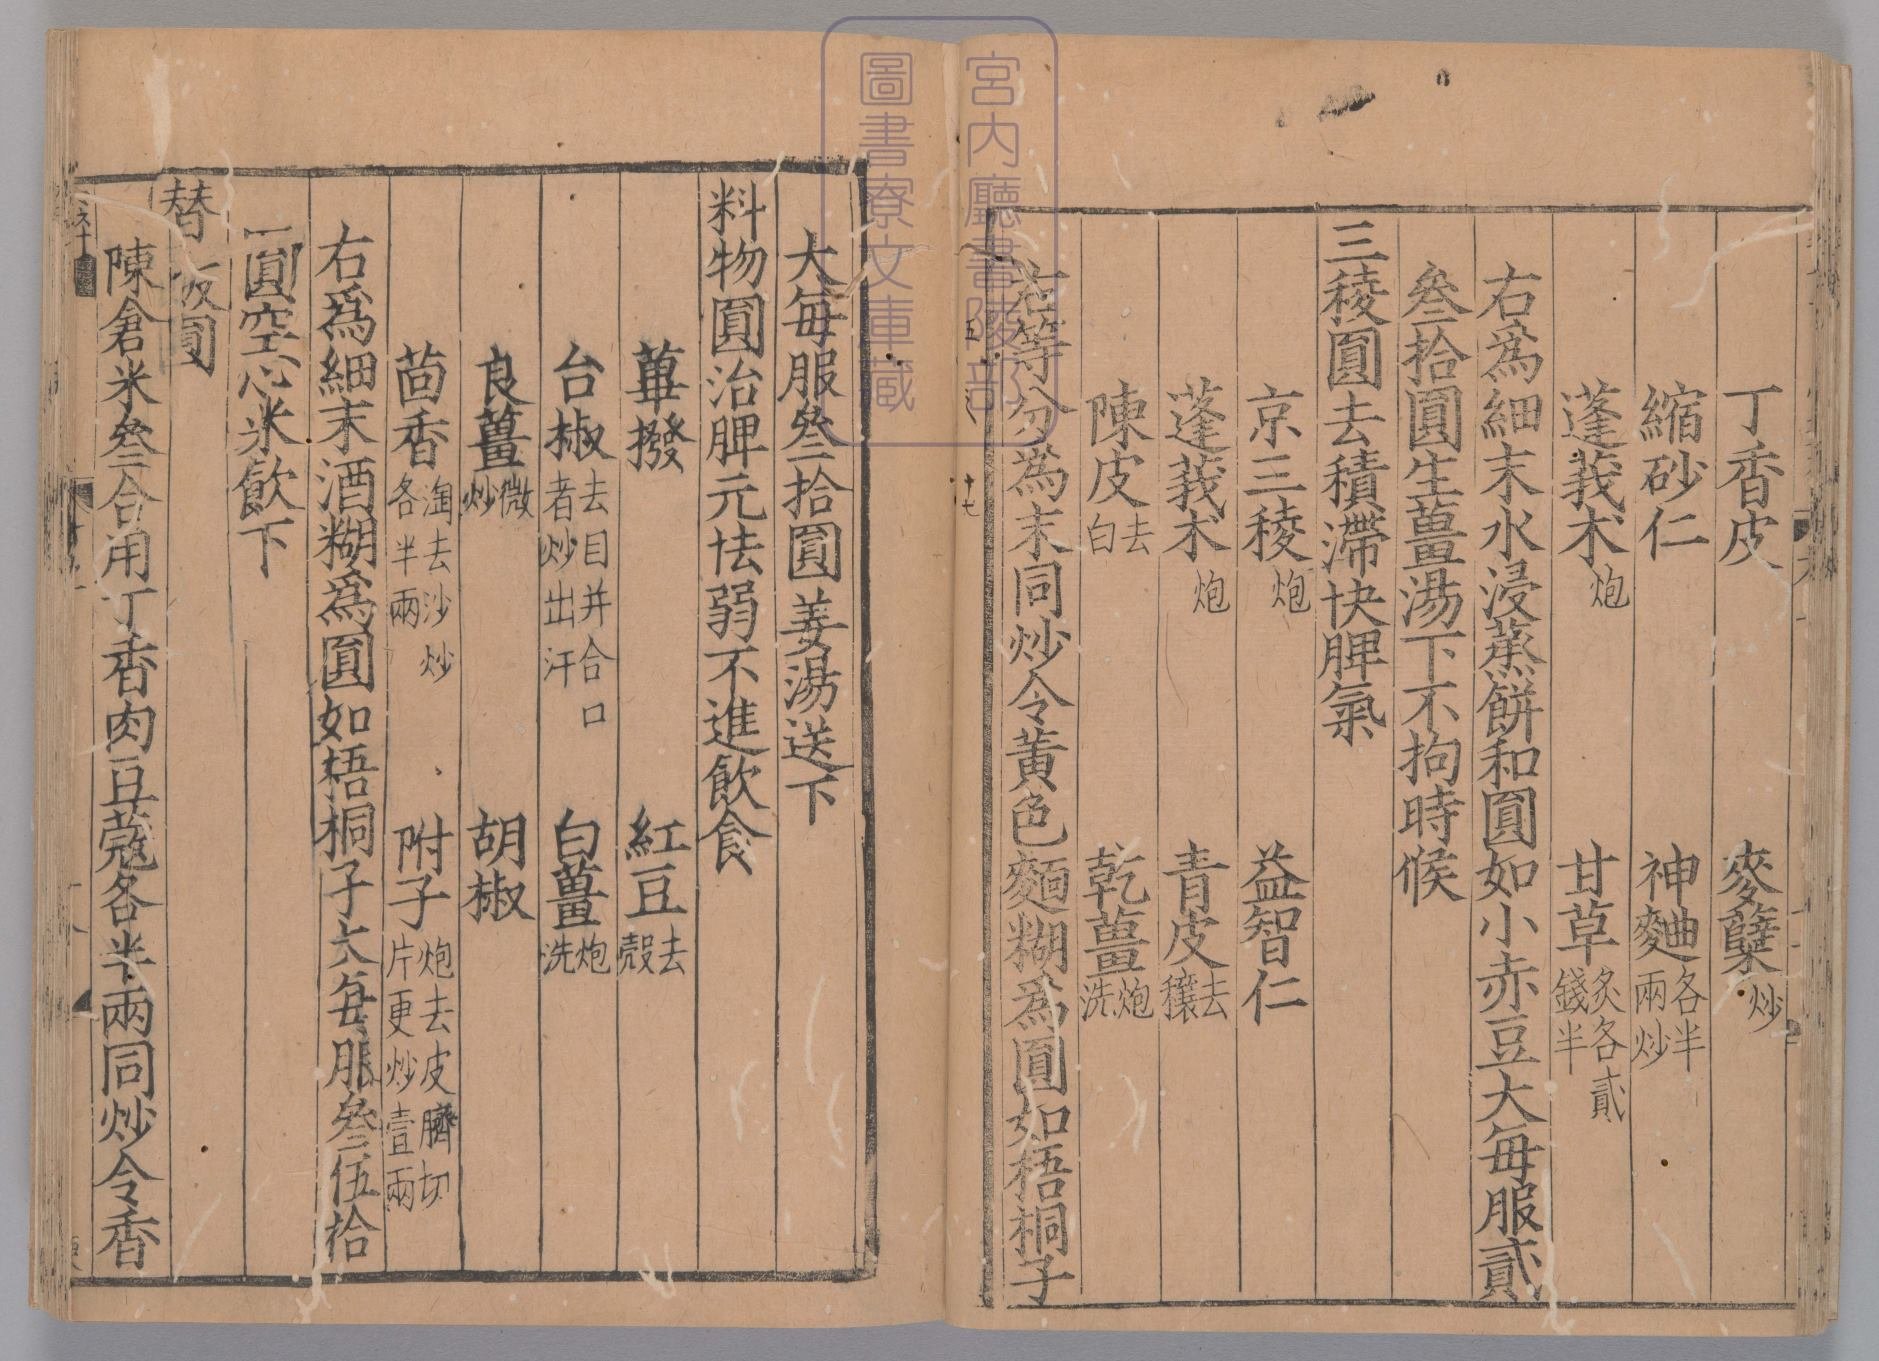 丁香皮 麥糱炒
縮砂仁 神麯各半兩炒
蓬莪朮炮 甘草炙各貳錢半
右爲細末水浸蒸餅和圓如小赤豆大每服貳
叄拾圓生薑湯下不拘時候
三稜圓去積滯快脾氣
京三稜炮 益智仁
蓬莪朮炮 青皮去穰
陳皮去白 乾薑炮洗
右等分為末同炒令黃色麵糊為圓如梧桐子
大每服叄拾圓姜湯送下
料物圓治脾元怯弱不進飲食
蓽撥 紅豆去殼
台椒去目并合口者炒出汗 白薑炮洗
良薑微炒 胡椒
茴香淘去沙炒各半兩 附子炮去皮臍切片更炒壹兩
右爲細末酒糊爲圓如梧桐子大每服叄伍拾
圓空心米飲下
替針圓
陳倉米叄合用丁香肉豆蔻各半兩同炒令香
宮内廳書陵部
圖書寮文庫藏